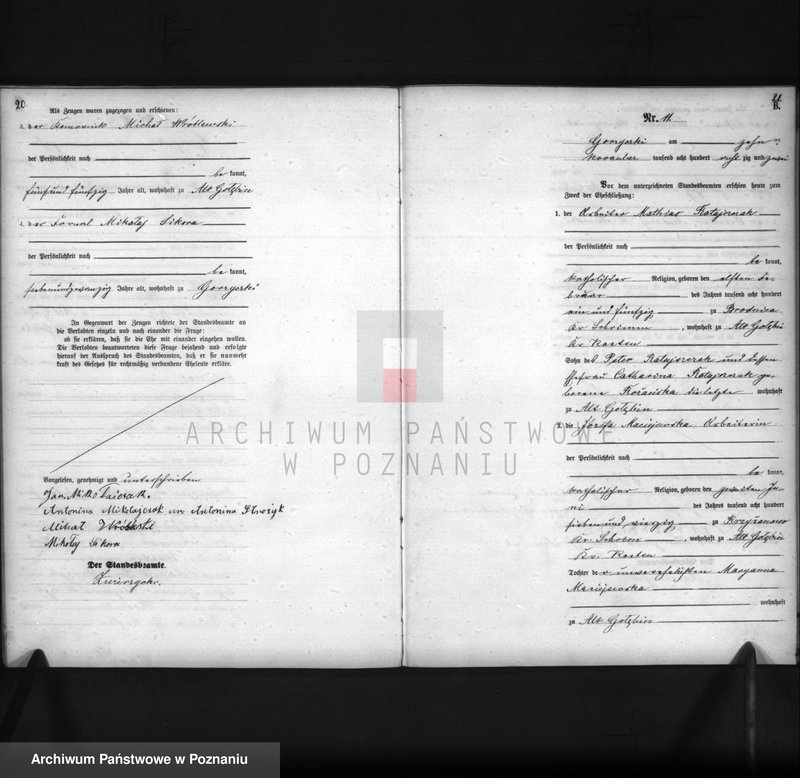 20.
Als Zeugen waren zugezogen und erschienen:
3. der Komornik Michał Wróblewski
der Persönlichkeit nach
be kannt,
fünfund fünfzig Jahre alt, wohnhaft zu Alt Gołębin
4. der Mikołaj Sikora
der Persönlichkeit nach
be kannt,
siebenundzwanzig Jahre alt, wohnhaft zu Gorzyczki
In Gegenwart der Zeugen richtete der Standesbeamte an
die Verlobten einzeln und nach einander die Frage:
ob sie erklären, daß sie die Ehe mit einander eingehen wollen.
Die Verlobten beantworteten diese Frage bejahend und erfolgte
hierauf der Ausspruch des Standesbeamten, daß er sie nunmehr
kraft des Gesetzes für rechtmäßig verbundene Eheleute erkläre.
Vorgelesen, genehmigt und unterschrieben
Jan Mikołajczak.
Antonina Mikołajczak
Michał Wróblewski
Mikołaj Sikora
Der Standesbeamte.
21.
B.
Nr. 11
Gorzyczki am zehn ten
November tausend acht hundert acht zig und zwei
Vor dem unterzeichneten Standesbeamten erschien heute zum
Zweck der Eheschließung:
1. der Arbeiter Mathias Ratajczak
der Persönlichkeit nach
be kannt,
katholischer Religion, geboren den elften Fe-
bruar des Jahres tausend acht hundert
ein und fünfzig zu Brodnica
Kr. Schrimm, wohnhaft zu Alt Gołębin
Kr. Kosten
Sohn des Peter Ratajczak und dessen
Ehefrau Catharina Ratajczak ge-
borene die letzte wohnhaft
zu Alt Gołębin
2. die Józefa Maciejewska Arbeiterin
der Persönlichkeit nach
be kannt,
katholischer Religion, geboren den zweiten Ju-
ni des Jahres tausend acht hundert
sieben und vierzig zu Krzyżanowo
Kr. Schrimm, wohnhaft zu Alt Gołębin
Kr. Kosten
Tochter der unverehelichten Maryanna
Maciejewska
wohnhaft
zu Alt Gołębin
ARCHIWUM PAŃSTWOWE
W POZNANIU
Archiwum Państwowe w Poznaniu